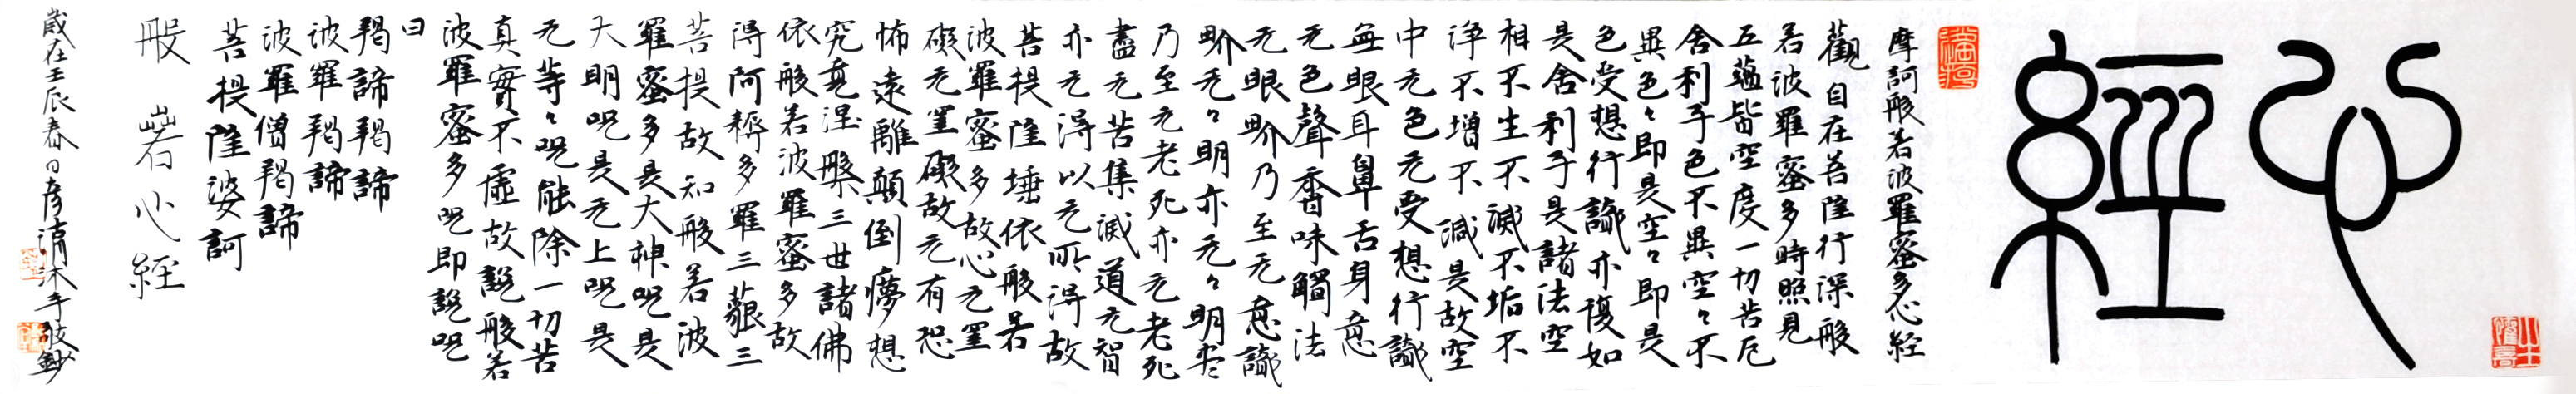 心經
摩訶般若波羅蜜多心経
觀自在菩薩行深般
若波羅蜜多時照見
五蘊皆空度一切苦厄
舍利子色不異空々不
異色々即是空々即是
色受想行識亦復如
是舍利子是諸法空
相不生不滅不垢不
淨不增不減是故空
中无色无受想行識
無眼耳鼻舌身意
无色聲香味觸法
无眼界乃至无意識
界无々明亦无々明尽
乃至无老死亦无老死
盡无苦集滅道无智
亦无得以无所得故
菩提薩埵依般若
波羅蜜多故心无罣
礙无罣礙故无有恐
怖遠離顛倒夢想
究竟涅槃三世諸佛
依般若波羅蜜多故
得阿耨多羅三藐三
菩提故知般若波
羅蜜多是大神呪是
大明呪是无上呪是
无等々呪能除一切苦
真實不虛故說般若
波羅蜜多呪即說呪
曰
羯諦羯諦
波羅羯諦
波羅僧羯諦
菩提薩婆訶
般若心経
歳在壬辰春日彦清沐手敬鈔